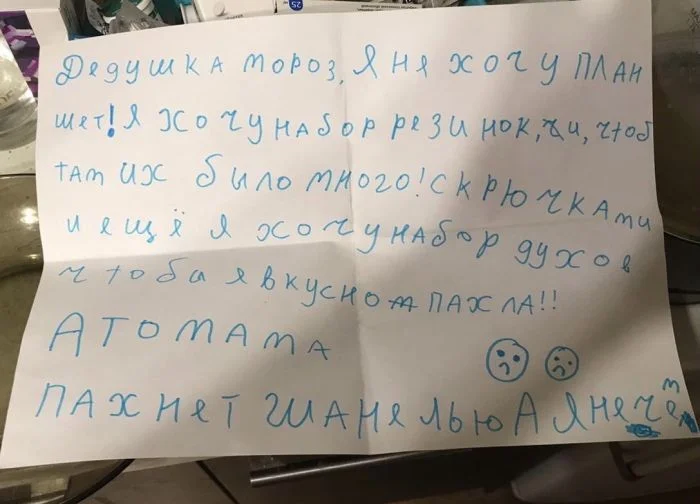 ДЕДУШКА МОРОЗ, Я НЯ ХОЧУ ПЛАН
ШЕТ! Я ХОЧУ НАБОР РЕЗИНОК, И, ЧТОБ
ТАМ ИХ БЫЛО МНОГО! С КРЮЧКАМИ
И ЯЩЁ Я ХОЧУ НАБОР ДУХОВ
ЧТОБА Я ВКУСНО ПАХЛА!!
А ТО МАМА
ПАХНЕТ ШАНЕЛЬЮ А Я НЕЧЕМ